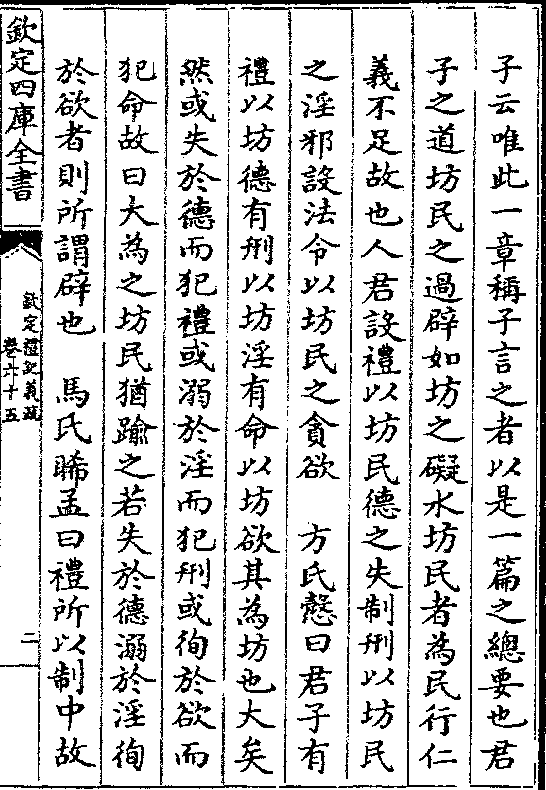 子云唯此一章稱子言之者以是一篇之總要也君
子之道坊民之過辟如坊之礙水坊民者為民行仁
義不足故也人君設禮以坊民德之失制刑以坊民
之淫邪設法令以坊民之貪欲　方氏慤曰君子有
禮以坊德有刑以坊淫有命以坊欲其為坊也大矣
然或失於德而犯禮或溺於淫而犯刑或徇於欲而
犯命故曰大為之坊民猶踰之若失於德溺於淫徇
於欲者則所謂辟也　馬氏晞孟曰禮所以制中故
欽定四庫全書
欽定禮記義疏
卷六十五
二